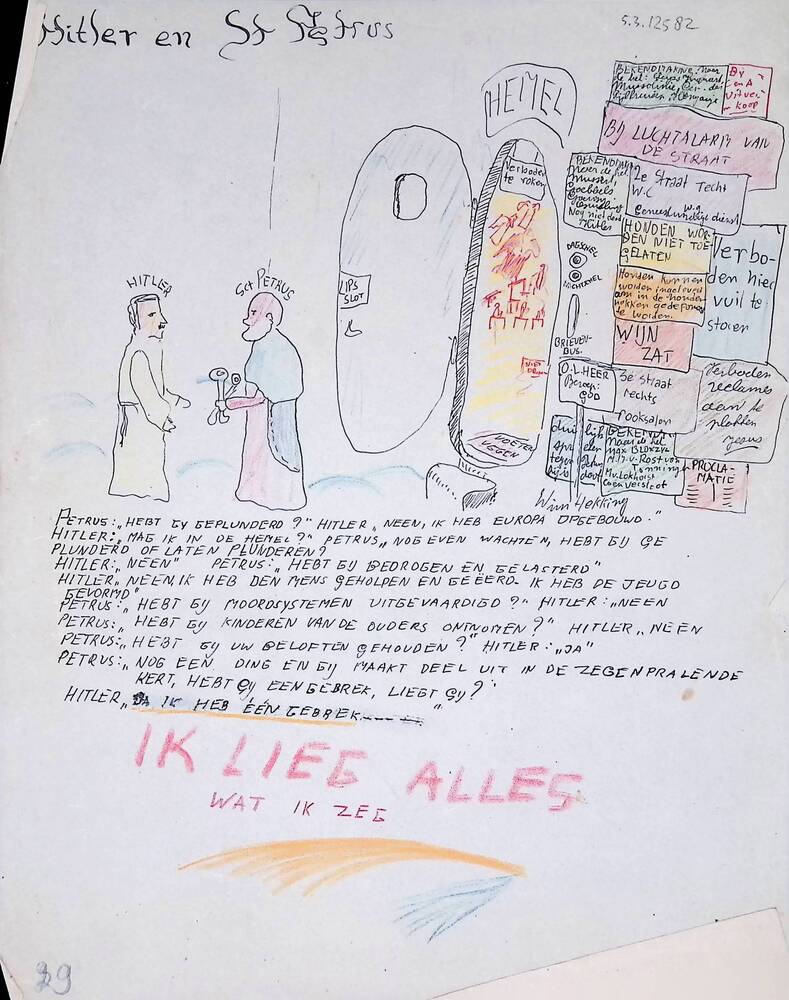 Hitler en St Petrus
5.3.12582
HEMEL
BEKENDMAKING. Naar
Mussolinie,
BIJ
en A
uitver-
koop
BIJ LUCHTALARM VAN
DE STRAAT
Verboden
te roken
BEKENDM
Mussert,
Goebbels
Nog niet dood
Hitler
2e Straat recht
W.C
w.g.
Geneeskundige dienst
HONDEN WOR-
DEN NIET TOE-
GELATEN
Verbo-
den hier
vuil te
storen
DAGSCHEL
NACHTSCHEL
Honden kunnen
worden ingeleverd
om in de honden-
hokken gedeponeerd
te worden.
WIJN
ZAT
HITLER
Sct PETRUS
LIPS
SLOT
BRIEVEN-
BUS.
O.L.HEER
Beroep:
GOD
3e straat
rechts
Rooksalon
Verboden
reclames
aan te
plakken
Jesus
VOETEN
VEGEN
BEKENDM
Max BLOKZYL
M.v. Rost van
Tonningen
PROCLA-
MATIE
Wim Hekking
PETRUS: „HEBT GY GEPLUNDERD?" HITLER „NEEN, IK HEB EUROPA OPGEBOUWD."
HITLER: „MAG IK IN DE HEMEL?" PETRUS „NOG EVEN WACHTEN, HEBT GIJ GE
PLUNDERD OF LATEN PLUNDEREN?
HITLER: „NEEN" PETRUS: „HEBT GIJ BEDROGEN EN GELASTERD"
HITLER „NEEN, IK HEB DEN MENS GEHOLPEN EN GEËERD. IK HEB DE JEUGD
GEVORMD"
PETRUS: „HEBT GIJ MOORDSYSTEMEN UITGEVAARDIGD?" HITLER: „NEEN
PETRUS: „HEBT GIJ KINDEREN VAN DE OUDERS ONTNOMEN?" HITLER „NEEN
PETRUS: „HEBT GIJ UW BELOFTEN GEHOUDEN?" HITLER: „JA"
PETRUS: „NOG EEN DING EN GIJ MAAKT DEEL UIT IN DE ZEGENPRALENDE
KERT, HEBT GIJ EEN GEBREK, LIEGT GIJ?"
HITLER „JA IK HEB ÉÉN GEBREK---- "
IK LIEG ALLES
WAT IK ZEG
39